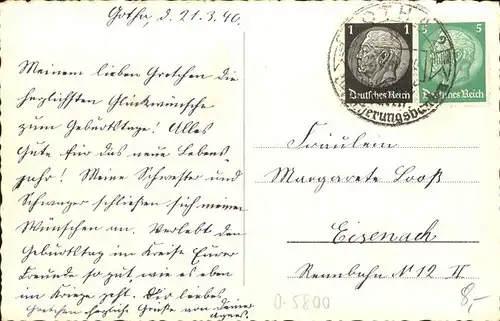 Gotha, d. 21.3.40.
Meinem lieben Gretchen die
herzlichsten Glückwünsche
zum Geburtstage! Alles
Gute für das neue Lebens-
jahr! Meine Schwester und
Schwager schließen sich meinen
Wünschen an. Verlebt den
Geburtstag im Kreise Eurer
Freunde so gut, wie es eben
im Kriege geht. Dir liebes
Gretchen herzliche Grüße von Deiner
Agnes.
1 1
Deutsches Reich
5 5
Deutsches Reich
GOTHA
Fräulein
Margarete Looß
Eisenach
Rennbahn № 12 II
0-5800
8,-